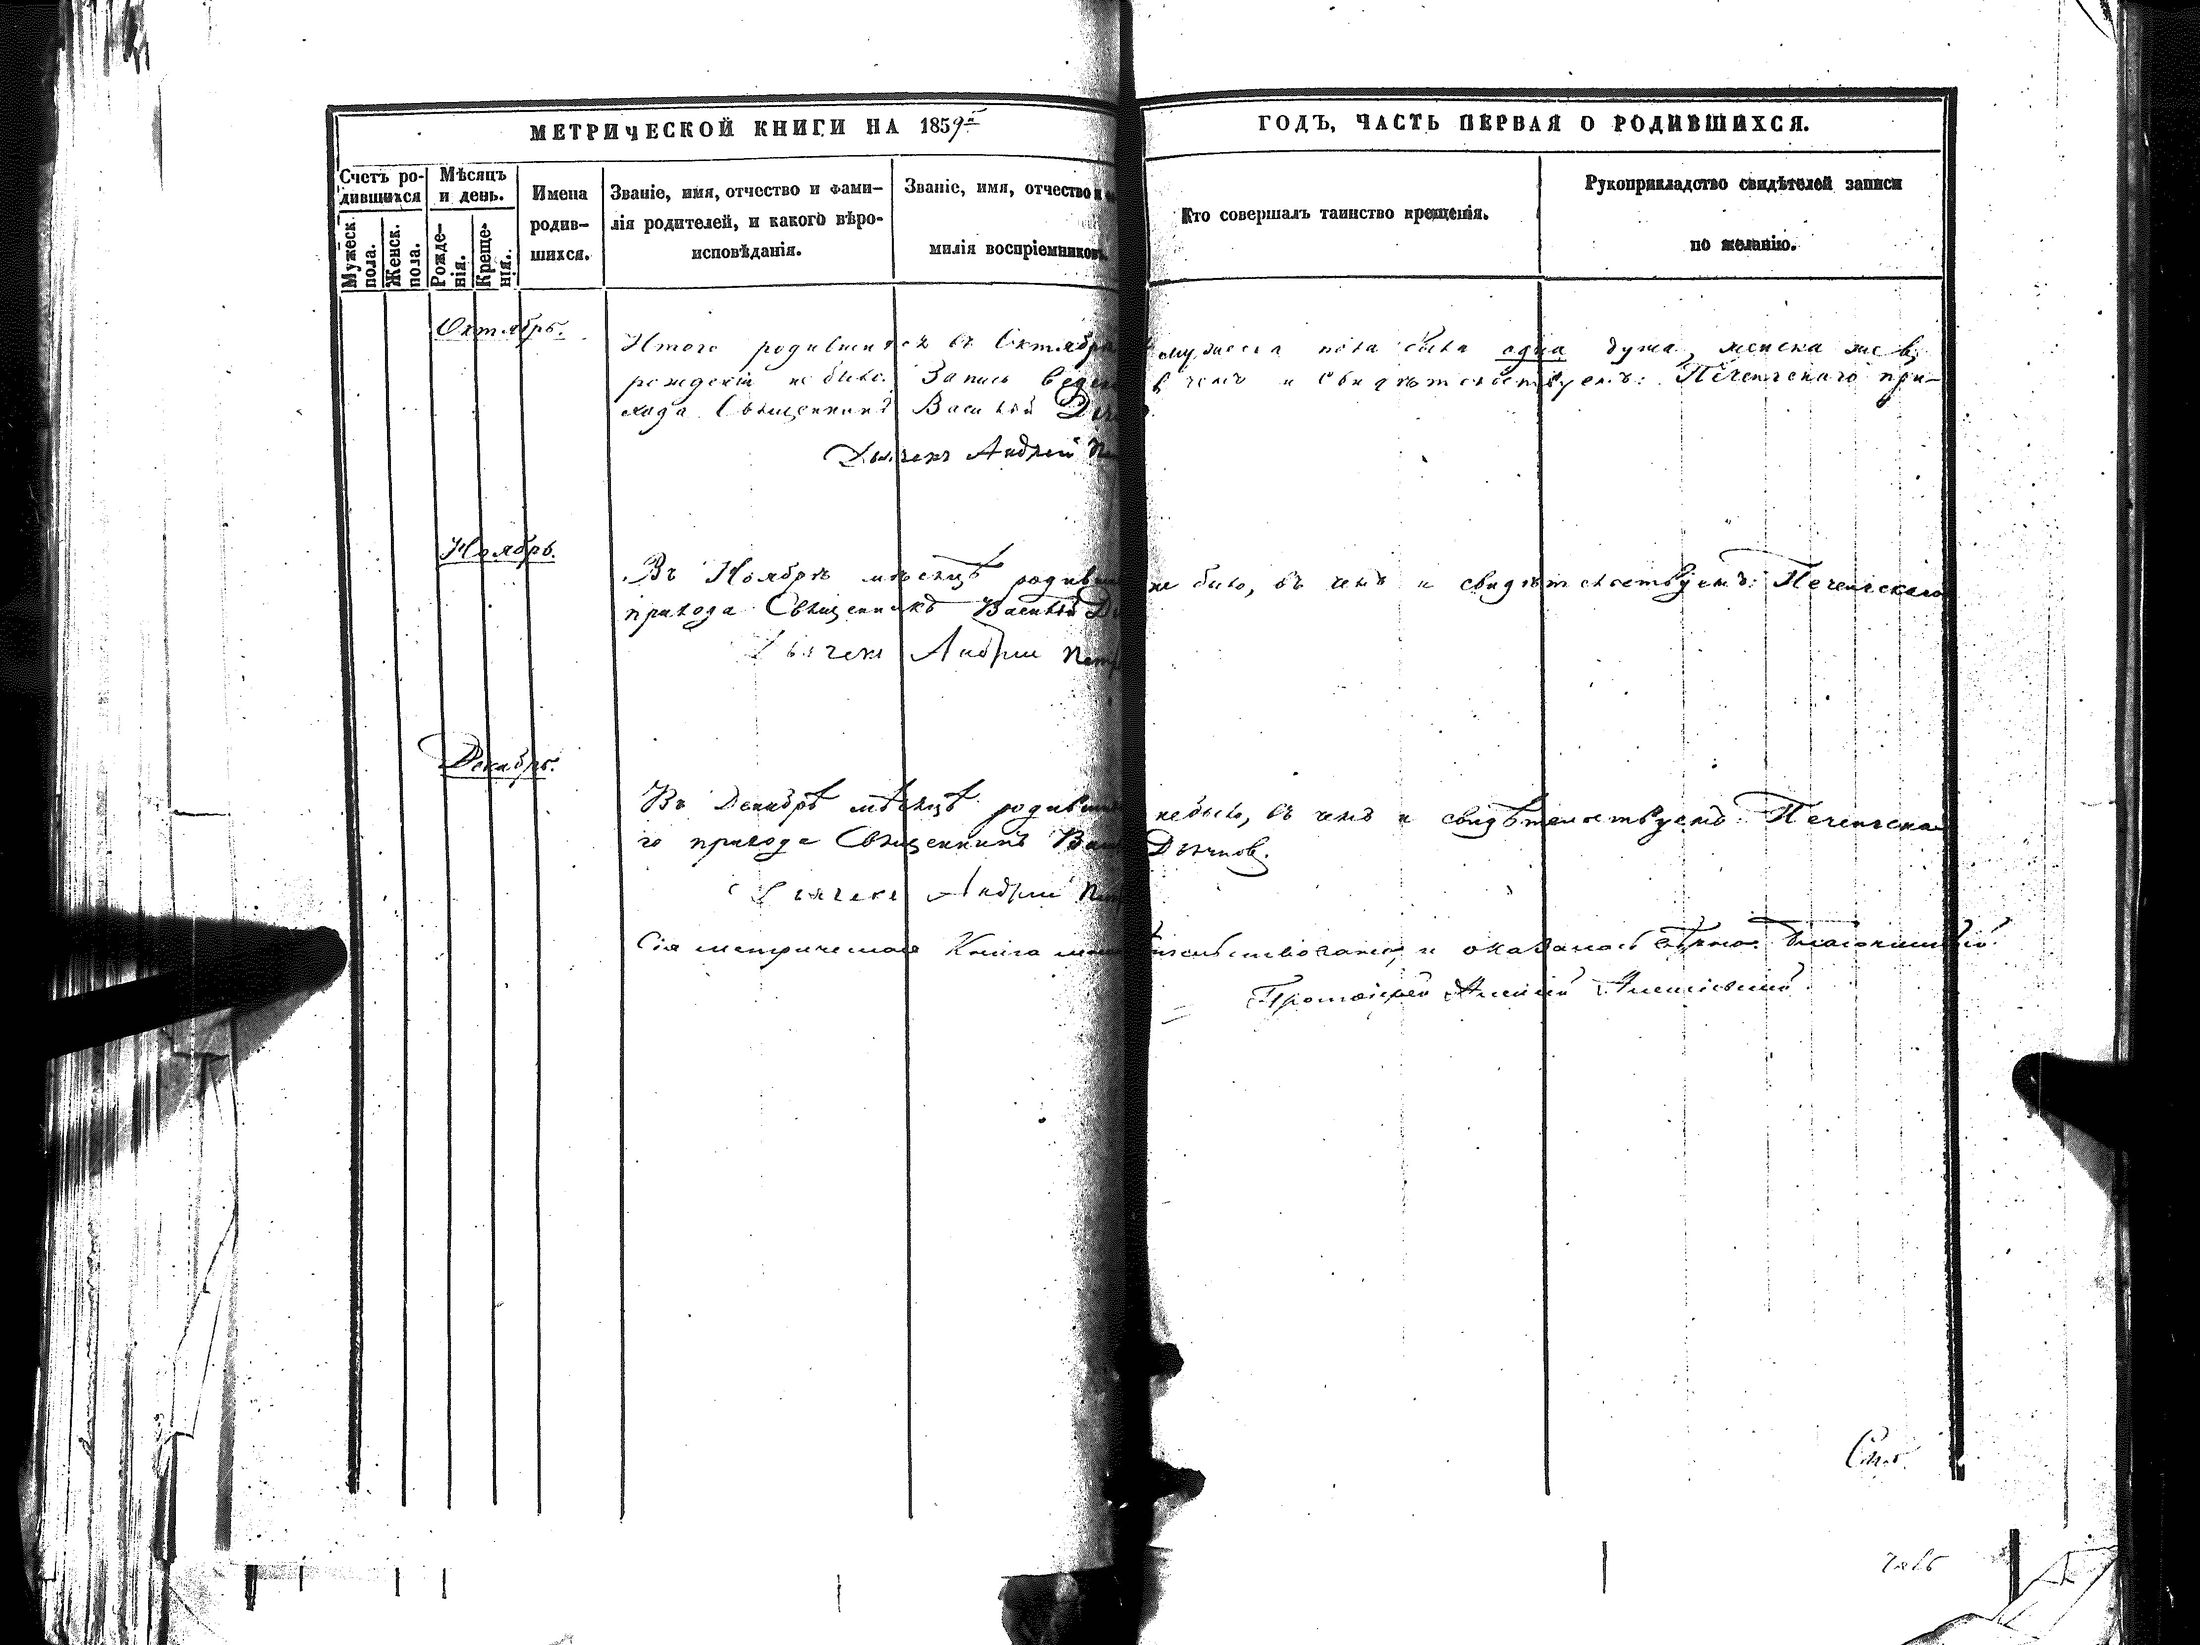 МЕТРИЧЕСКОЙ КНИГИ НА 1859й ГОДЪ, ЧАСТЬ ПЕРВАЯ О РОДИВШИХСЯ.
Счетъ ро-
дившихся
Мужеск. пола.
Женск. пола.
Мѣсяцъ
и день.
Рожде-
нія.
Креще-
нія.
Имена
родив-
шихся.
Званіе, имя, отчество и фами-
лія родителей, и какого вѣро-
исповѣданія.
Званіе, имя, отчество и
милія воспріемниковъ.
Кто совершалъ таинство крещенія.
Рукоприкладство свидѣтелей записи
по желанію.
Октябрь.
Итого родившихся въ Октябрѣ мужеска пола была одна душа, женска же
рожденій не было. Запись чемъ и свидѣтельствуемъ: Печенгскаго при-
хода Священникъ Василій
Дьячекъ Андрей
Ноябрь.
Въ Ноябрѣ мѣсяцѣ родив не было, въ чемъ и свидѣтельствуемъ: Печенгскаго
прихода Священникъ Василій
Дьячекъ Андрей Петр
Декабрь.
Въ Декабрѣ мѣсяцѣ родивш небыло, въ чемъ и свидѣтельствуемъ: Печенгска
го прихода Священникъ Дьячков.
Дьячекъ Андрей
Сія метрическая Книга и оказалась вѣрною. Благочинный
Протоіерей Алексій